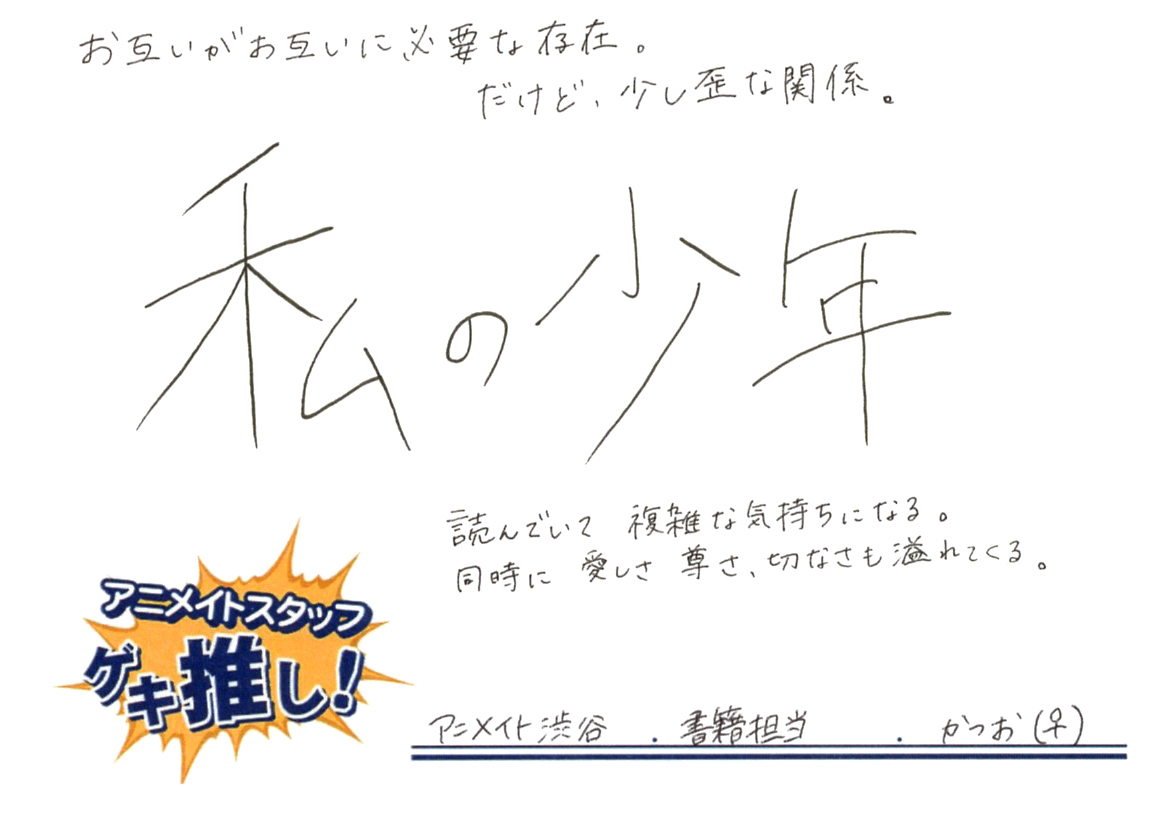 お互いがお互いに必要な存在。
だけど、少し歪な関係。
私の少年
読んでいて 複雑な気持ちになる。
同時に 愛しさ 尊さ、切なさも溢れてくる。
アニメイトスタッフ
ゲキ推し!
アニメイト渋谷 . 書籍担当 . かつお(♀)